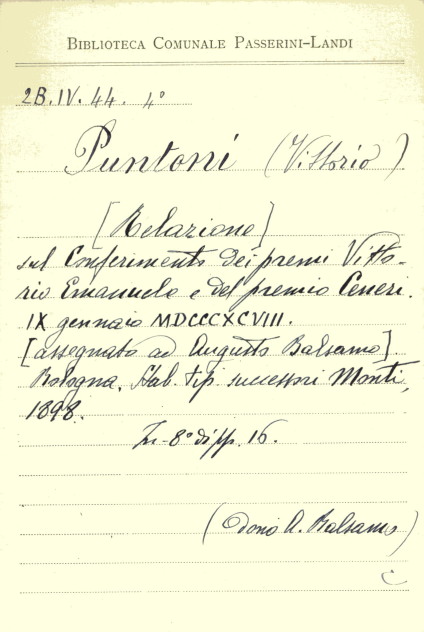 BIBLIOTECA COMUNALE PASSERINI-LANDI
2B.IV.44. 4°
Puntoni (Vittorio)
[Relazione]
sul Conferimento dei premi Vitto-
rio Emanuele e del premio Ceneri.
IX gennaio MDCCCXCVIII.
[assegnato ad Augusto Balsamo]
Bologna, Stab. tip. successori Monti,
1898.
In-8° di pp. 16.
(dono A. Balsamo)
C